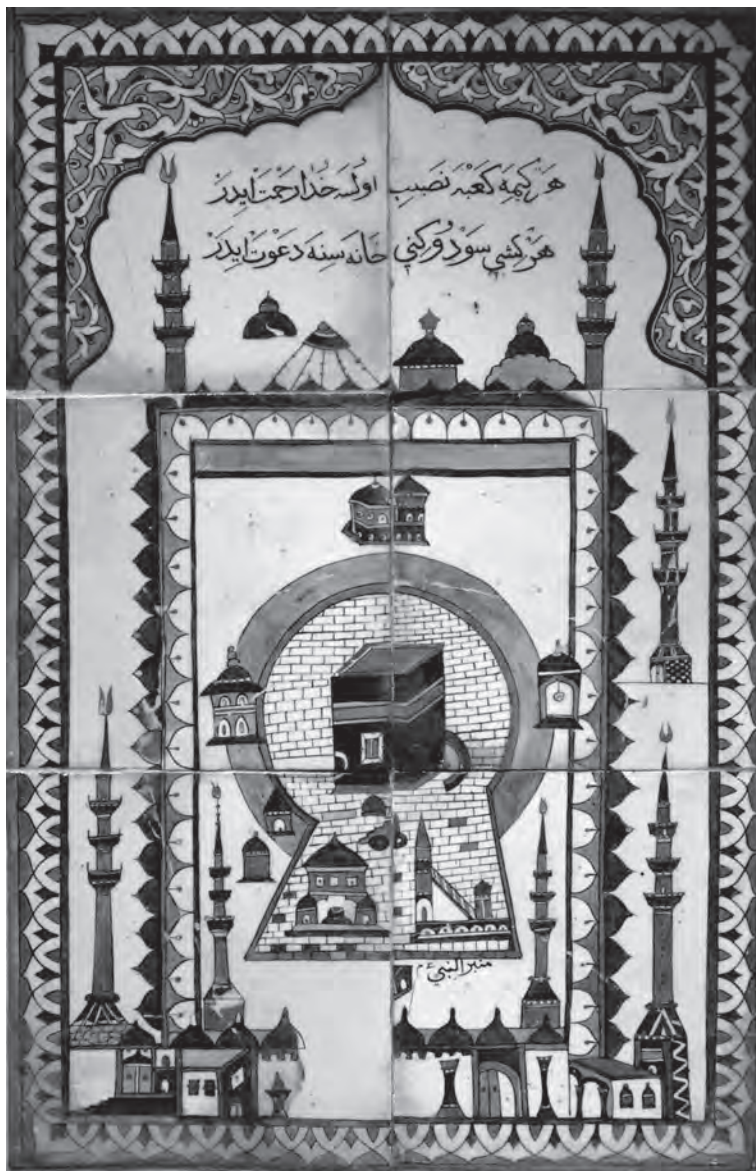 هَرْ كِيمَه كَعْبَه نَصِيبْ اولْسَه خُدَا رَحْمَتْ ايدَرْ
هَرْ كِشِي سَوْدُوكِنِي خَانَه سِنَه دَعْوَتْ ايدَرْ
منبر النبي